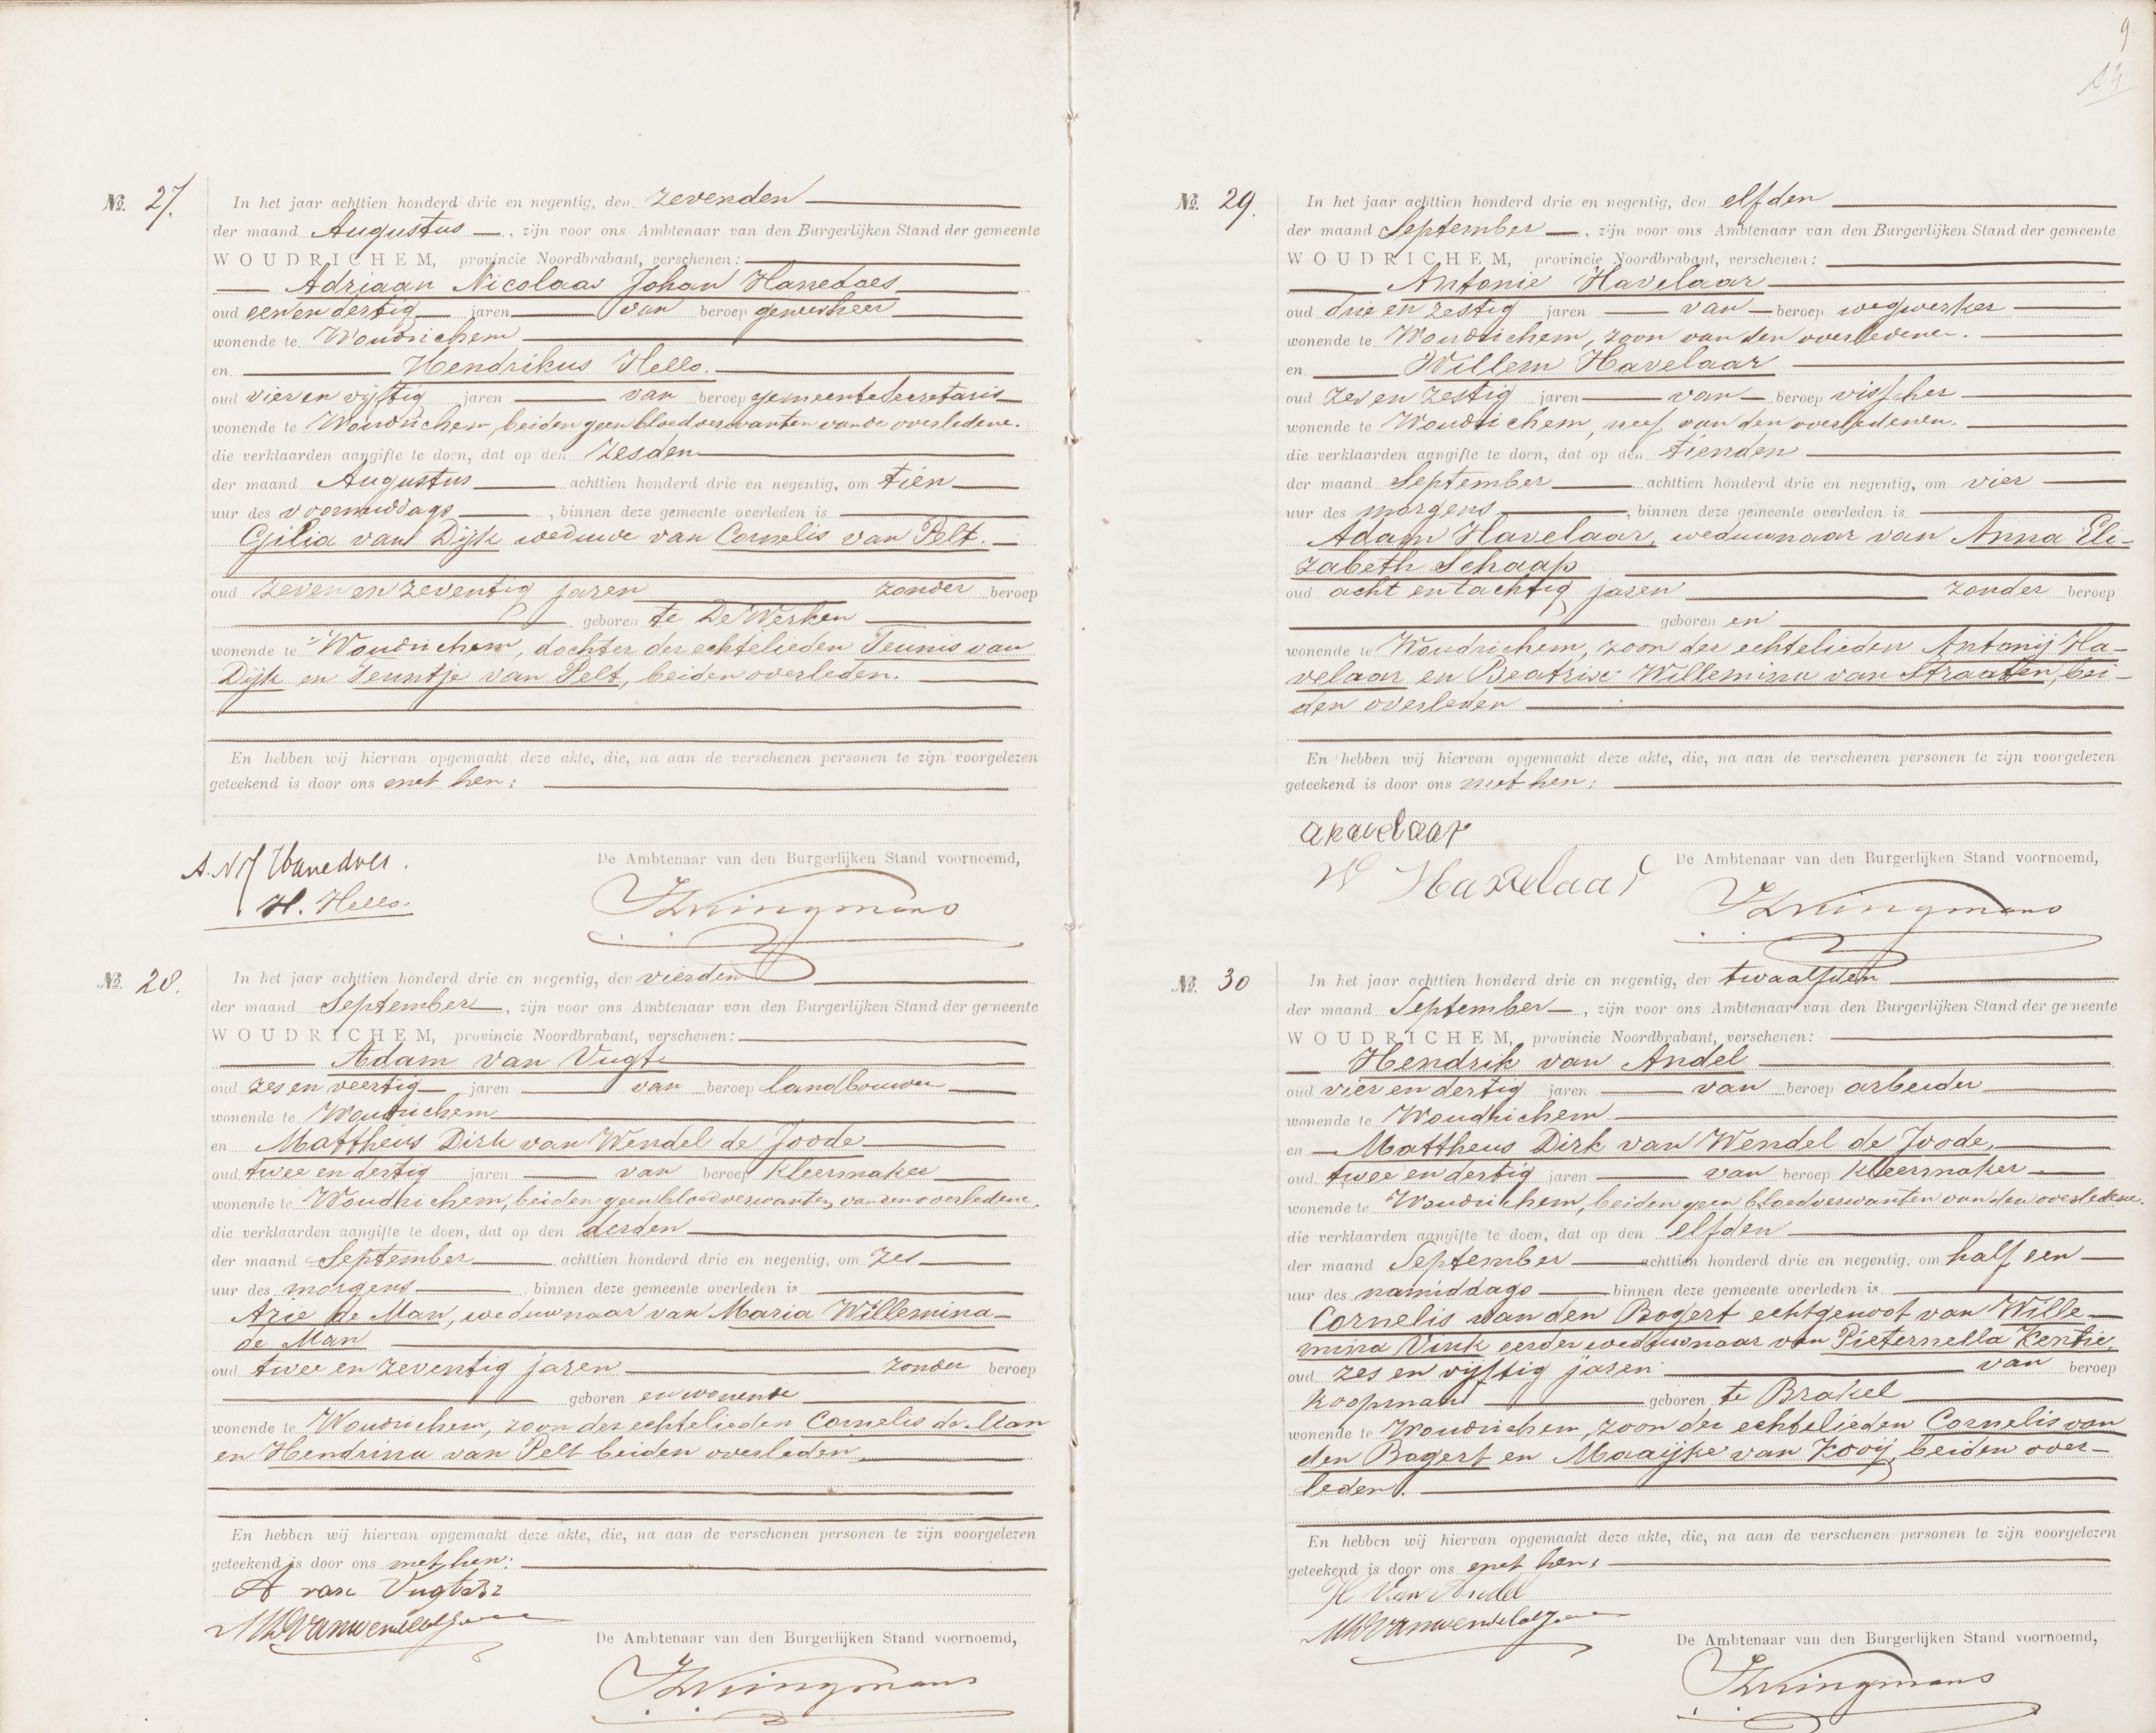 9
№. 27. In het jaar achttien honderd drie en negentig, den zevenden
der maand Augustus, zijn voor ons Ambtenaar van den Burgerlijken Stand der gemeente
WOUDRICHEM, provincie Noordbrabant, verschenen:
Adriaan Nicolaas Johan Hanedoes
oud eenendertig jaren van beroep geneesheer
wonende te Woudrichem
en Hendrikus Hello.
oud vierenvijftig jaren van beroep gemeentesecretaris
wonende te Woudrichem, beiden geen bloedverwanten van de overledene.
die verklaarden aangifte te doen, dat op den zesden
der maand Augustus achttien honderd drie en negentig, om tien
uur des voormiddags, binnen deze gemeente overleden is
van Dijk weduwe van Cornelis van Pelt.
oud zevenenzeventig jaren zonder beroep
geboren te De Werken
wonende te Woudrichem, dochter der echtelieden Teunis van
Dijk en Teuntje van Pelt, beiden overleden.
En hebben wij hiervan opgemaakt deze akte, die, na aan de verschenen personen te zijn voorgelezen
geteekend is door ons met hen:
De Ambtenaar van den Burgerlijken Stand voornoemd,
A. N J Hanedoes.
H. Hello.
№. 28. In het jaar achttien honderd drie en negentig, den vierden
der maand September, zijn voor ons Ambtenaar van den Burgerlijken Stand der gemeente
WOUDRICHEM, provincie Noordbrabant, verschenen:
Adam van Vugt
oud zes en veertig jaren van beroep landbouwer
wonende te Woudrichem
en Mattheus Dirk van Wendel de Joode
oud twee en dertig jaren van beroep kleermaker
wonende te Woudrichem, beiden geen bloedverwanten van den overledene.
die verklaarden aangifte te doen, dat op den derden
der maand September achttien honderd drie en negentig, om zes
uur des morgens binnen deze gemeente overleden is
Arie de Man, weduwnaar van Maria Willemina
de Man
oud twee en zeventig jaren zonder beroep
geboren en wonende
wonende te Woudrichem, zoon der echtelieden Cornelis de Man
en Hendrina van Pelt beiden overleden
En hebben wij hiervan opgemaakt deze akte, die, na aan de verschenen personen te zijn voorgelezen
geteekend is door ons met hen:
A van Vugt
De Ambtenaar van den Burgerlijken Stand voornoemd,
№. 29. In het jaar achttien honderd drie en negentig, den elfden
der maand September, zijn voor ons Ambtenaar van den Burgerlijken Stand der gemeente
WOUDRICHEM, provincie Noordbrabant, verschenen:
Antonie Havelaar
oud drie en zestig jaren van beroep wegwerker
wonende te Woudrichem, zoon van den overledene.
en Willem Havelaar
oud zes en zestig jaren van beroep visscher
wonende te Woudrichem, neef van den overledenen.
die verklaarden aangifte te doen, dat op den tienden
der maand September achttien honderd drie en negentig, om vier
uur des morgens, binnen deze gemeente overleden is
Adam Havelaar, weduwnaar van Anna Eli-
zabeth Schaap
oud acht en tachtig jaren zonder beroep
geboren en
wonende te Woudrichem, zoon der echtelieden Antonij Ha-
velaar en Beatrix Willemina van Straaten, bei-
den overleden
En hebben wij hiervan opgemaakt deze akte, die, na aan de verschenen personen te zijn voorgelezen
geteekend is door ons met hen:
a havelaar
De Ambtenaar van den Burgerlijken Stand voornoemd,
W Havelaar
№. 30 In het jaar achttien honderd drie en negentig, den twaalfden
der maand September, zijn voor ons Ambtenaar van den Burgerlijken Stand der gemeente
WOUDRICHEM, provincie Noordbrabant, verschenen:
Hendrik van Andel
oud vier en dertig jaren van beroep arbeider
wonende te Woudrichem
en Mattheus Dirk van Wendel de Joode,
oud twee en dertig jaren van beroep kleermaker
wonende te Woudrichem, beiden geen bloedverwanten van den overledene.
die verklaarden aangifte te doen, dat op den elfden
der maand September achttien honderd drie en negentig, om half een
uur des namiddags binnen deze gemeente overleden is
Cornelis van den Bogert echtgenoot van Wille-
mina Vink eerder weduwnaar van Pieternella Kentie,
oud zes en vijftig jaren van beroep
koopman geboren te Brakel
wonende te Woudrichem, zoon der echtelieden Cornelis van
den Bogert en Maaijke van Kooij, beiden over-
leden.
En hebben wij hiervan opgemaakt deze akte, die, na aan de verschenen personen te zijn voorgelezen
geteekend is door ons met hen:
H Van Andel
De Ambtenaar van den Burgerlijken Stand voornoemd,